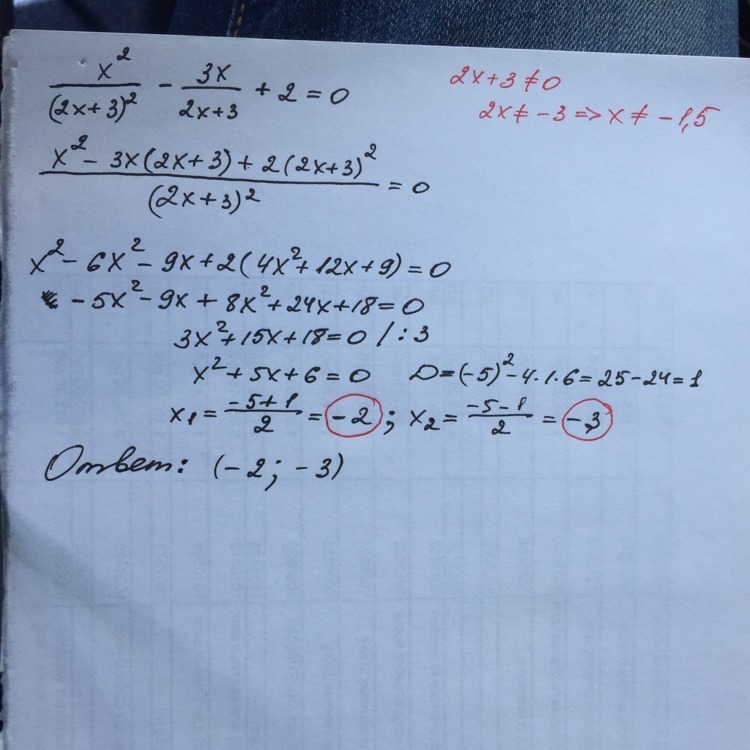 x²/(2x+3)² - 3x/(2x+3) + 2 = 0
2x+3 ≠ 0
2x ≠ -3 => x ≠ -1,5
(x² - 3x(2x+3) + 2(2x+3)²)/(2x+3)² = 0
x² - 6x² - 9x + 2(4x² + 12x + 9) = 0
-5x² - 9x + 8x² + 24x + 18 = 0
3x² + 15x + 18 = 0 / : 3
x² + 5x + 6 = 0 D = (-5)² - 4·1·6 = 25 - 24 = 1
x₁ = (-5+1)/2 = -2; x₂ = (-5-1)/2 = -3
Ответ: (-2; -3)